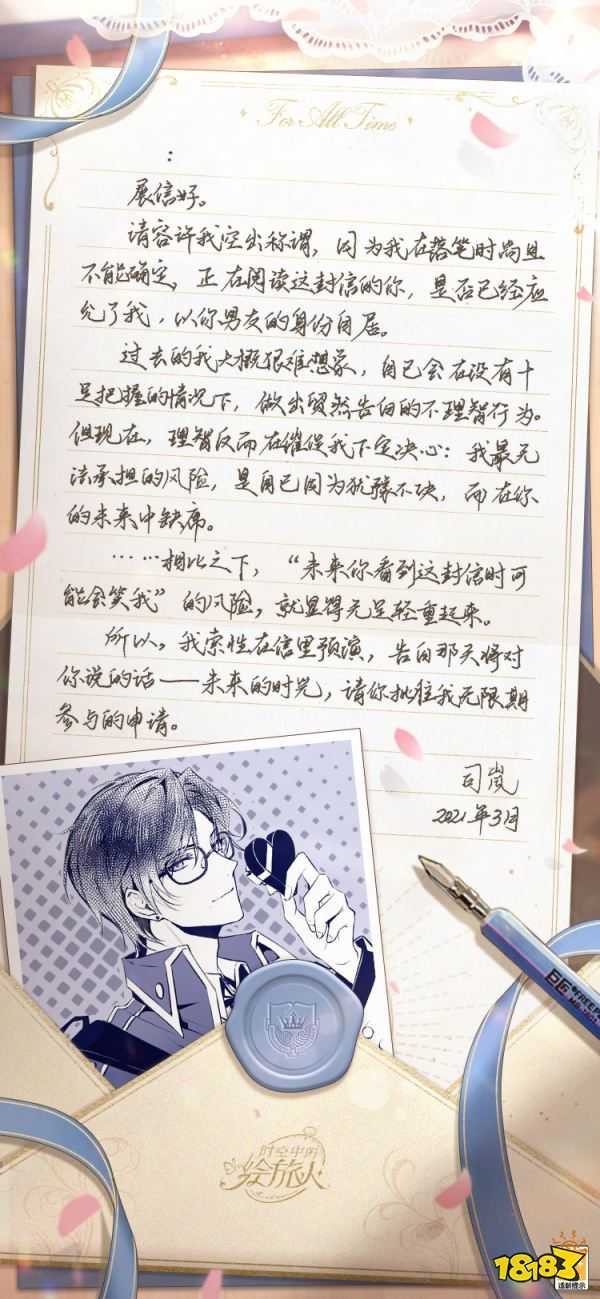 For All Time
：
展信好。
请容许我空出称谓，因为我在落笔时尚且
不能确定，正在阅读这封信的你，是否已经应
允了我，以你男友的身份自居。
过去的我大概很难想象，自己会在没有十
足把握的情况下，做出贸然告白的不理智行为。
但现在，理智反而在催促我下定决心：我最无
法承担的风险，是自己因为犹豫不决，而在你
的未来中缺席。
……相比之下，“未来你看到这封信时可
能会笑我”的风险，就显得无足轻重起来。
所以，我索性在信里预演，告白那天将对
你说的话——未来的时光，请你批准我无限期
参与的申请。
司岚
2021年3月
时空中的
绘旅人
18183
适龄提示